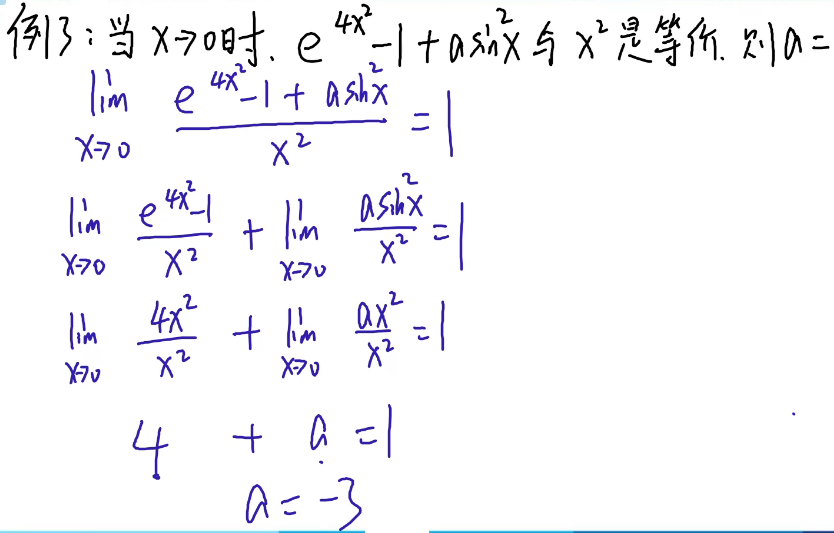 例3：当 x→0时. e^{4x²}-1+asin²x 与 x² 是等价. 则a=
lim_{x→0} (e^{4x²}-1+asin²x)/x² =1
lim_{x→0} (e^{4x²}-1)/x² + lim_{x→0} (asin²x)/x² =1
lim_{x→0} 4x²/x² + lim_{x→0} ax²/x² =1
4 + a =1
a=-3